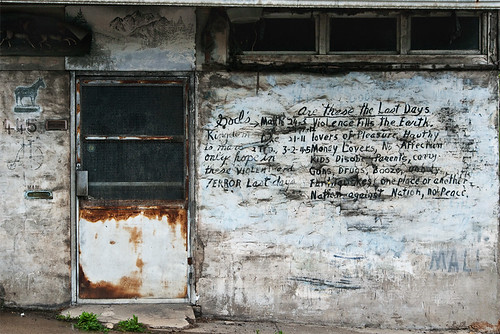 445
MAIL
God's
Kingdom
is mans
only hope in
these violent and
TERROR Last days
Are these the Last Days
Matt 24:3 Violence Fills the Earth.
21-11 lovers of Pleasure, Haughty
3-2-4-5 Money Lovers, No Affection
Kids Disobe Parents,
Guns, Drugs, Booze,
one place or another
Nation against Nation, no Peace.
MAL